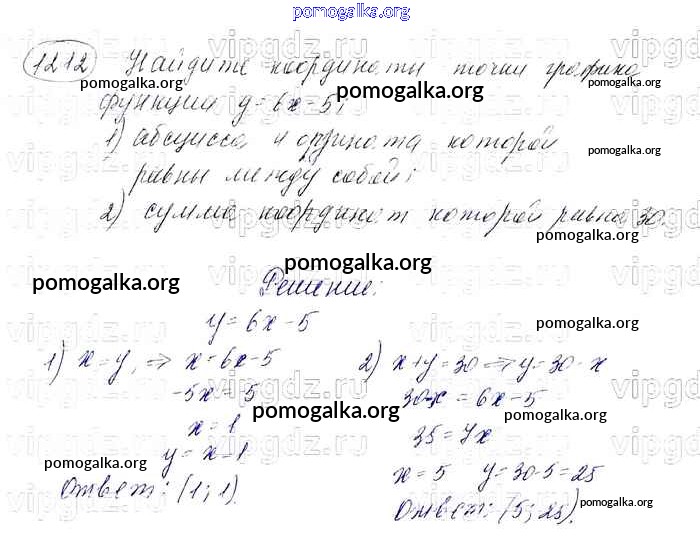 pomogalka.org
1212 Найдите координаты точки графика
функции y=6x-5;
1) абсцисса и ордината которой
равны между собой;
2) сумма координат которой равна 30.
Решение:
y=6x-5
1) x=y, ⇒ x=6x-5
-5x=-5
x=1
y=x=1
Ответ: (1; 1).
2) x+y=30 ⇒ y=30-x
30-x=6x-5
35=7x
x=5 y=30-5=25
Ответ: (5; 25).
pomogalka.org
pomogalka.org
pomogalka.org
pomogalka.org
pomogalka.org
pomogalka.org
pomogalka.org
pomogalka.org
pomogalka.org
pomogalka.org
pomogalka.org
pomogalka.org
pomogalka.org